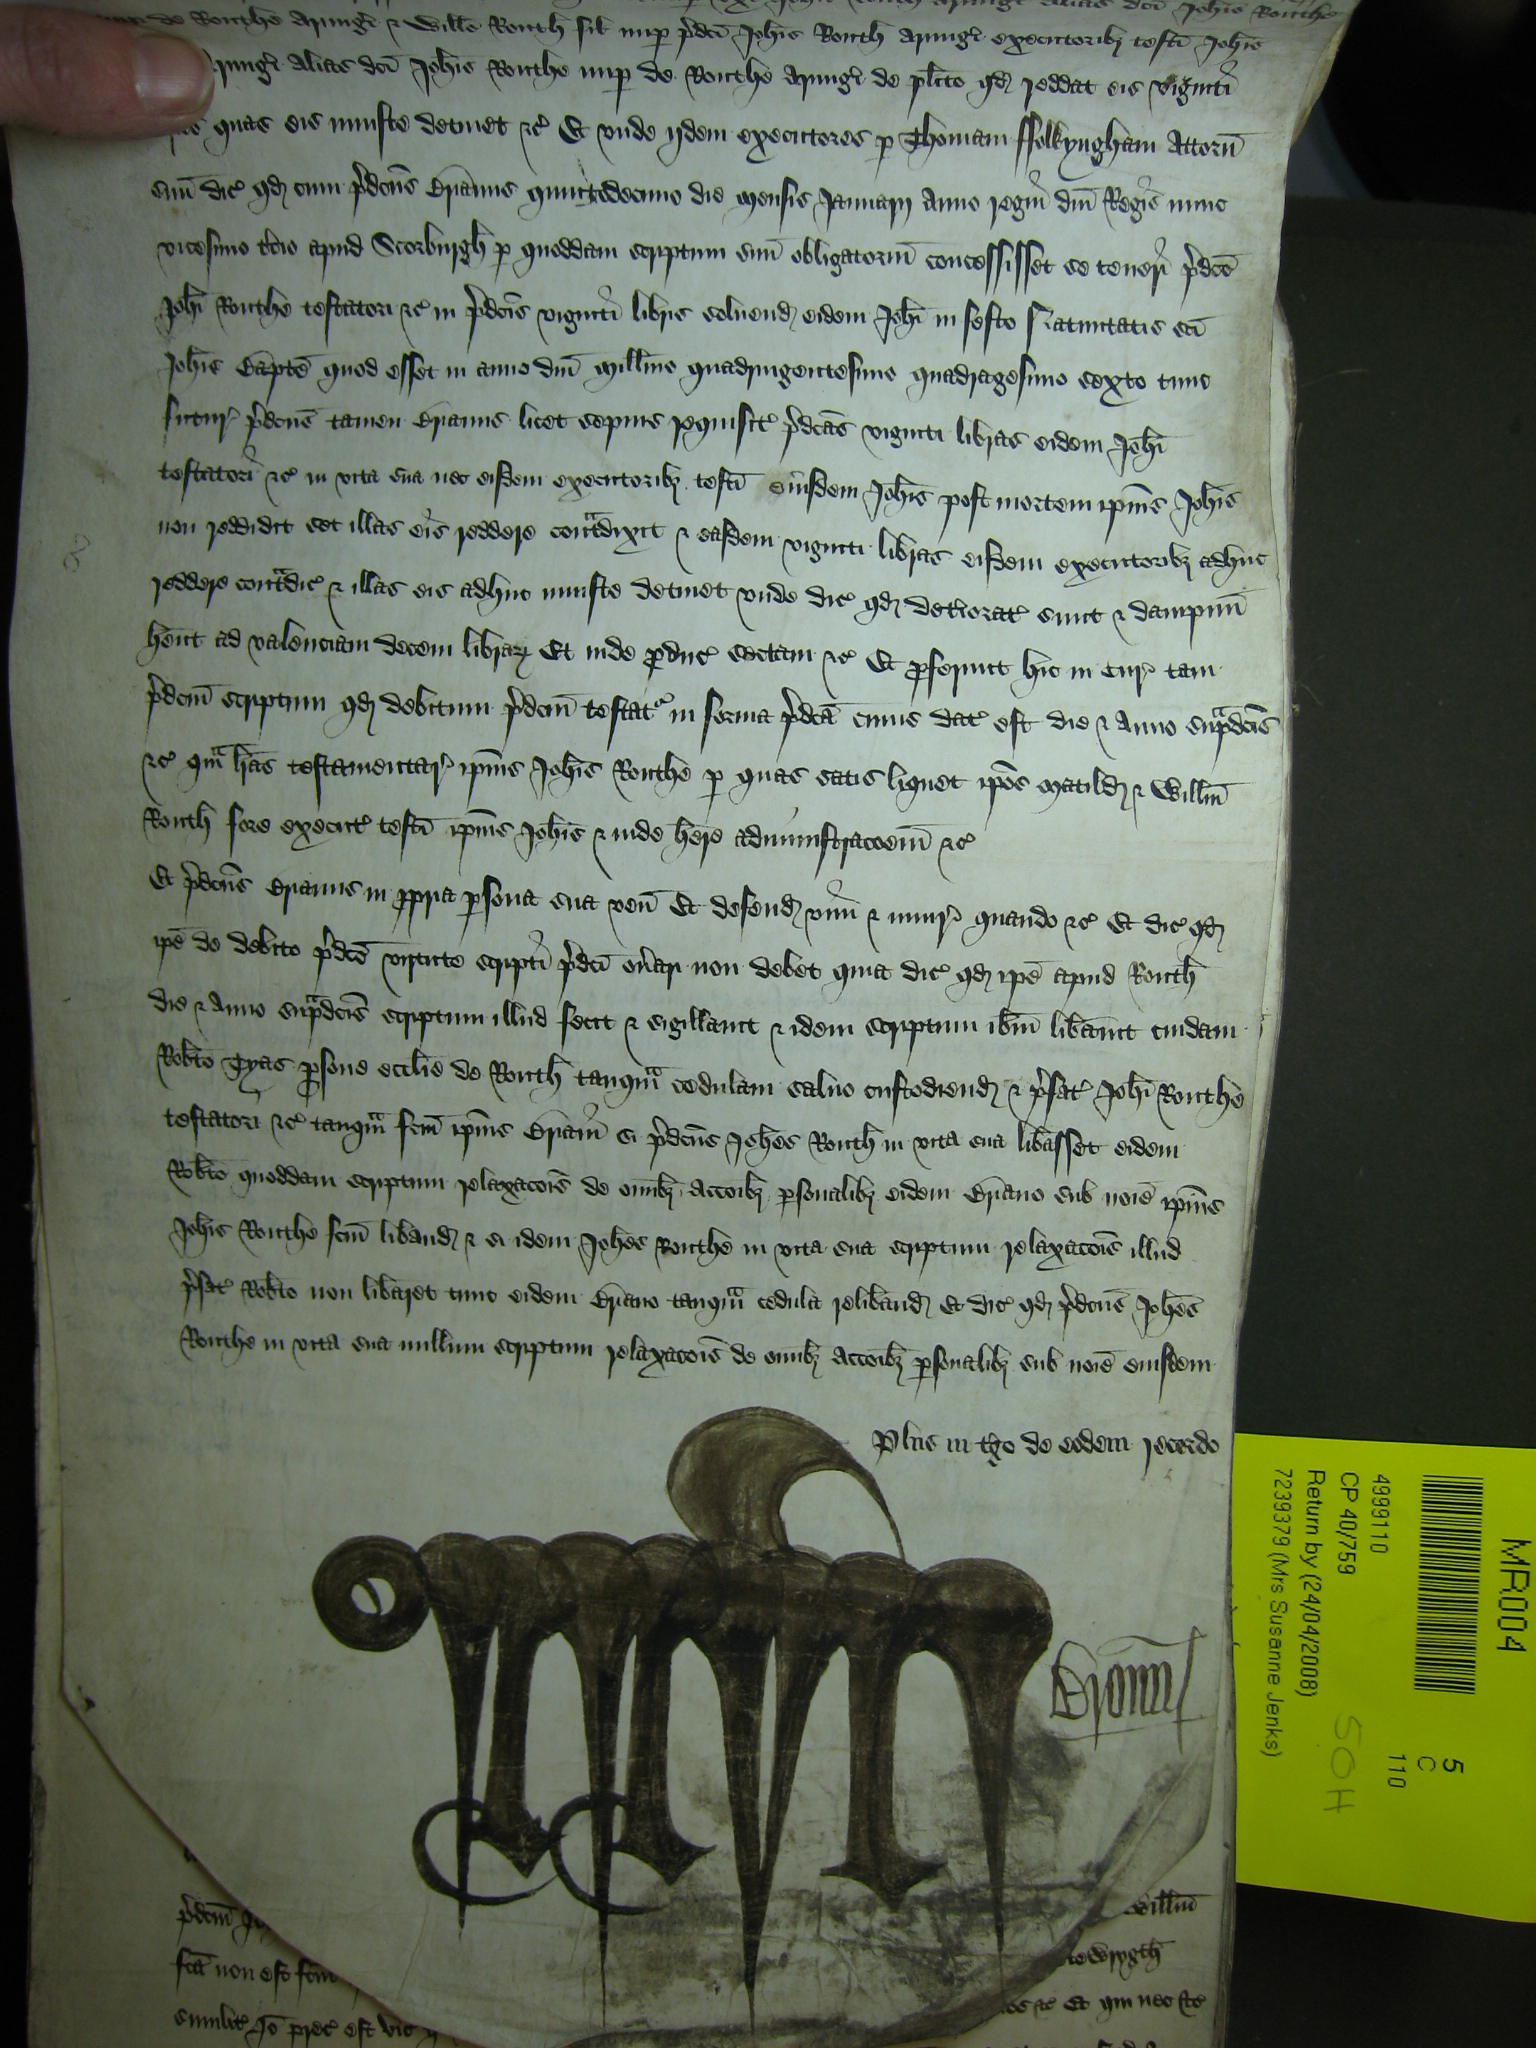 de Routhe Armigi & Willo Routh fil nup p̄dci Joh̄is Routh Armigi executorib3 testi Joh̄is
Armigi Alias dci Joh̄is Routhe nup de Routhe Armigi de pl̄ito qd reddat eis viginti
quas eis iniuste detinet &c̄ Et unde ijdem executores p Thomam ffolkyngham Attorn̄
suu dic̄ qd cum p̄dcus Brianus quintodecimo die mensis Januarij Anno regni dn̄i Regis nunc
vicesimo t̄cio apud Scorburgh p quoddam scriptum suu obligatoriu concessisset se teneri p̄dc̄o
Joh̄i Routhe testatori &c̄ in p̄dcis viginti libris soluend eidem Joh̄i in festo Natiuitatis sc̄i
Joh̄is Bapt̄e quod esset in anno dn̄i Mill̄mo quadringentesimo quadragesimo sexto tunc
futur̄ p̄dcus tamen Brianus licet sepius requisit̄ p̄dcas viginti libras eidem Joh̄i
testatori &c̄ in vita sua nec eisdem executorib3 testi eiusdem Joh̄is post mortem ip̄ius Joh̄is
non reddidit set illas eis reddere cont̄dixit & easdem viginti libras eisdem executorib3 adhuc
reddere cont̄dic̄ & illas eis adhuc iniuste detinet unde dic̄ qd det̄iorat̄ sunt & dampnu
hent ad valenciam decem librar̄ Et inde p̄duc̄ sectam &c̄ Et p̄ferunt hic in Cur̄ tam
p̄dcm scriptum qd debitum p̄dcm testat̄ in forma p̄dca cuius dat̄ est die & Anno sup̄dcis
&c̄ qm̄ l̄ras testamentar̄ ip̄ius Joh̄is Routhe p quas satis liquet ip̄os Matild & Will̄m
Routh fore execut̄ testi ip̄ius Joh̄is & inde h̄ere administracoem &c̄
Et p̄dcus Brianus in ppria psona sua ven̄ Et defend vim & iniur̄ quando &c̄ Et dic̄ qd
ip̄e de debito p̄dco virtute scripti p̄dci on̄ari non debet quia dic̄ qd ip̄e apud Routh
die & Anno sup̄dcis scriptum illud fecit & sigillauit & idem scriptum ib̄m lib̄auit cuidam
Rob̄to Tyas p̄sone eccl̄ie de Routh tanqm̄ cedulam saluo custodiend & p̄fat̄ Joh̄i Routhe
testatori &c̄ tanqm̄ fcm̄ ip̄ius Briani si p̄dcus Joh̄es Routh in vita sua lib̄asset eidem
Rob̄to quoddam scriptum relaxacois de om̄ib3 Accoib3 p̄sonalib3 eidem Briano sub noīe ip̄ius
Joh̄is Routhe fcm̄ lib̄and & si idem Joh̄es Routhe in vita sua scriptum relaxacois illud
p̄fat̄ Rob̄to non lib̄aret tunc eidem Briano tanqm̄ cedula relib̄and Et dic̄ qd p̄dcus Joh̄es
Routhe in vita sua nullum scriptum relaxacois de om̄ib3 Accoib3 p̄sonalib3 sub noīe eiusdem
Plus in t̄go de eodem recordo
p̄dcm
Will̄m
fca non est fcm
sc̄wrygth
&c̄ Et qm nec &c̄
similit̄ Jo p̄rec̄ est vic̄
MR004
4999110
CP 40/759
Return by (24/04/2008)
7239379 (Mrs Susanne Jenks)
5
C
110